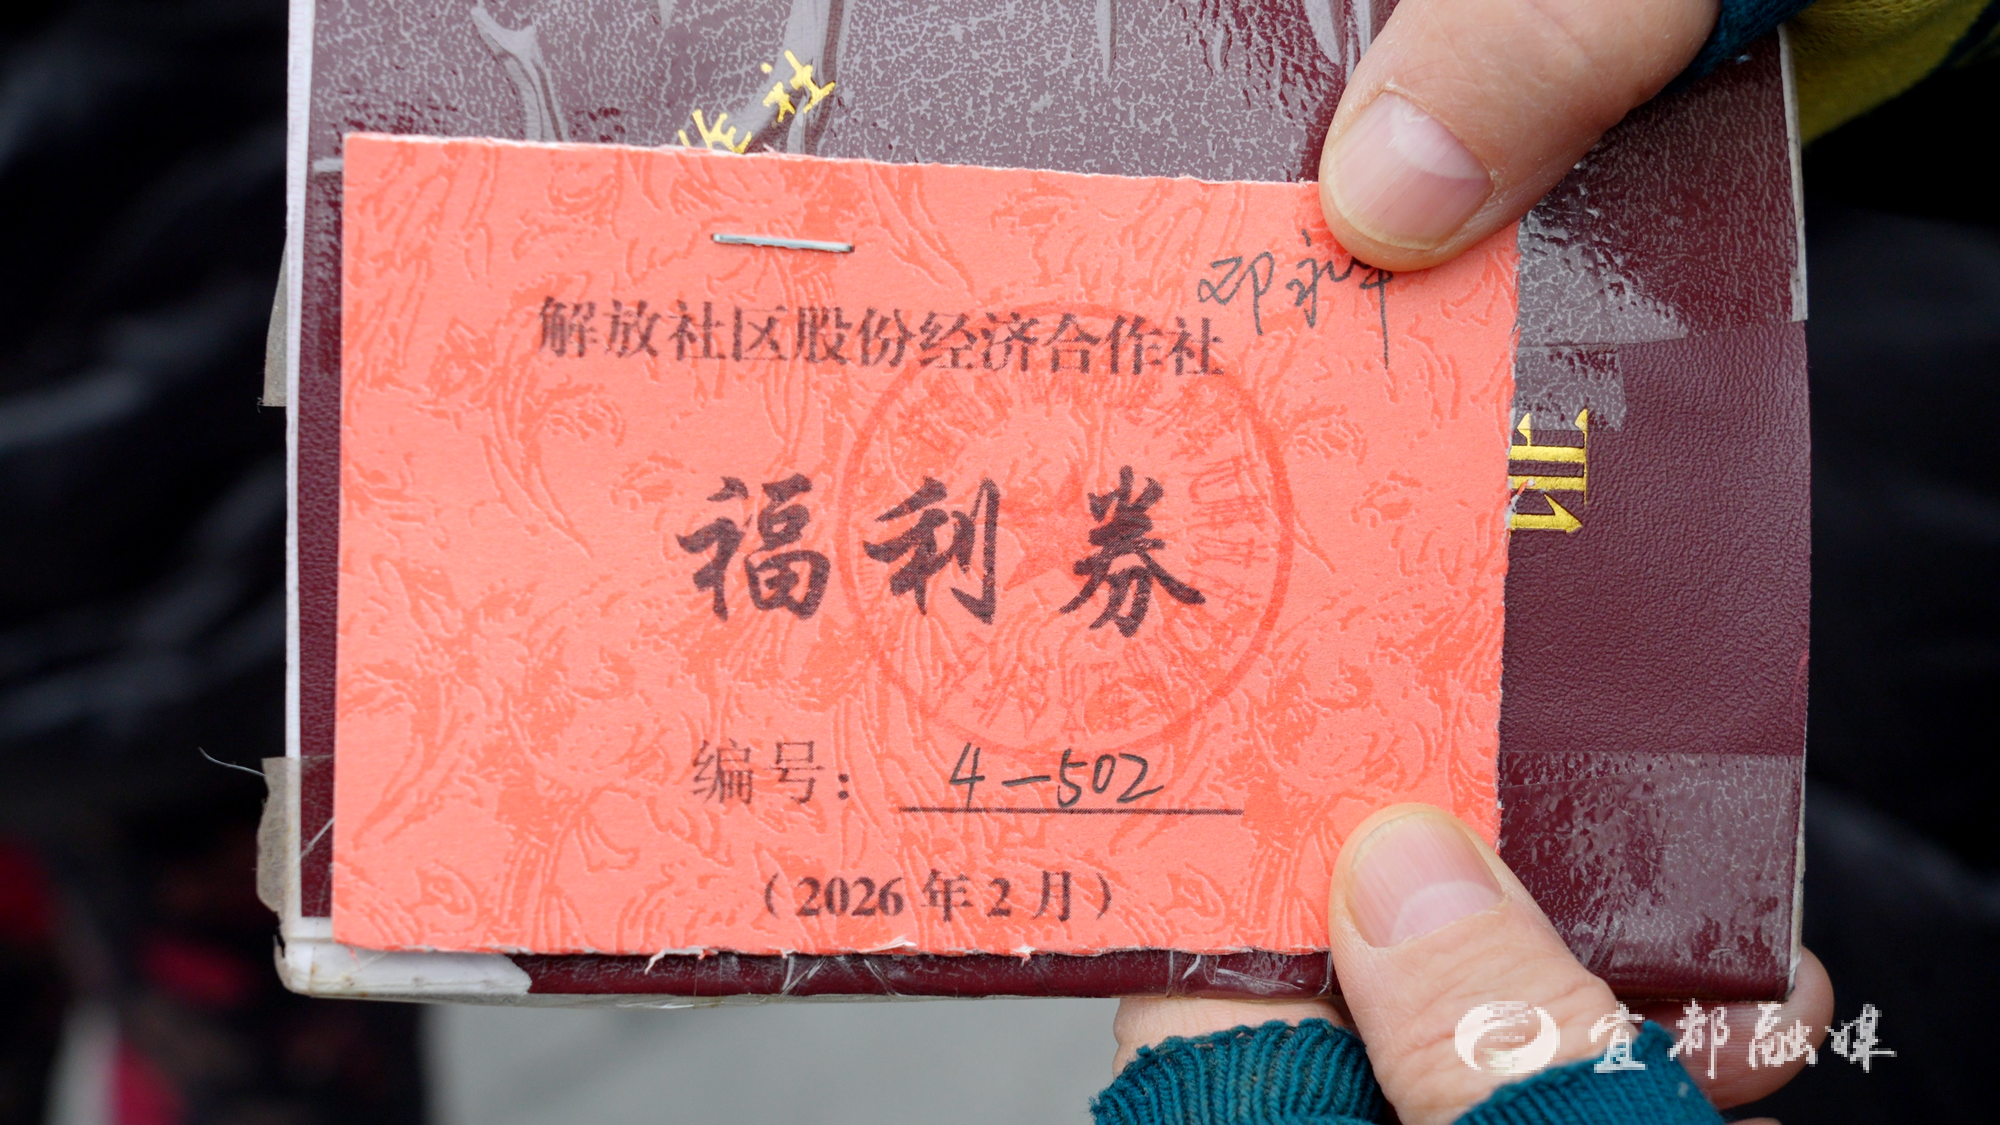 作社
邓永
解放社区股份经济合作社
福利券
编号：4-502
（2026年2月）
宜都融媒